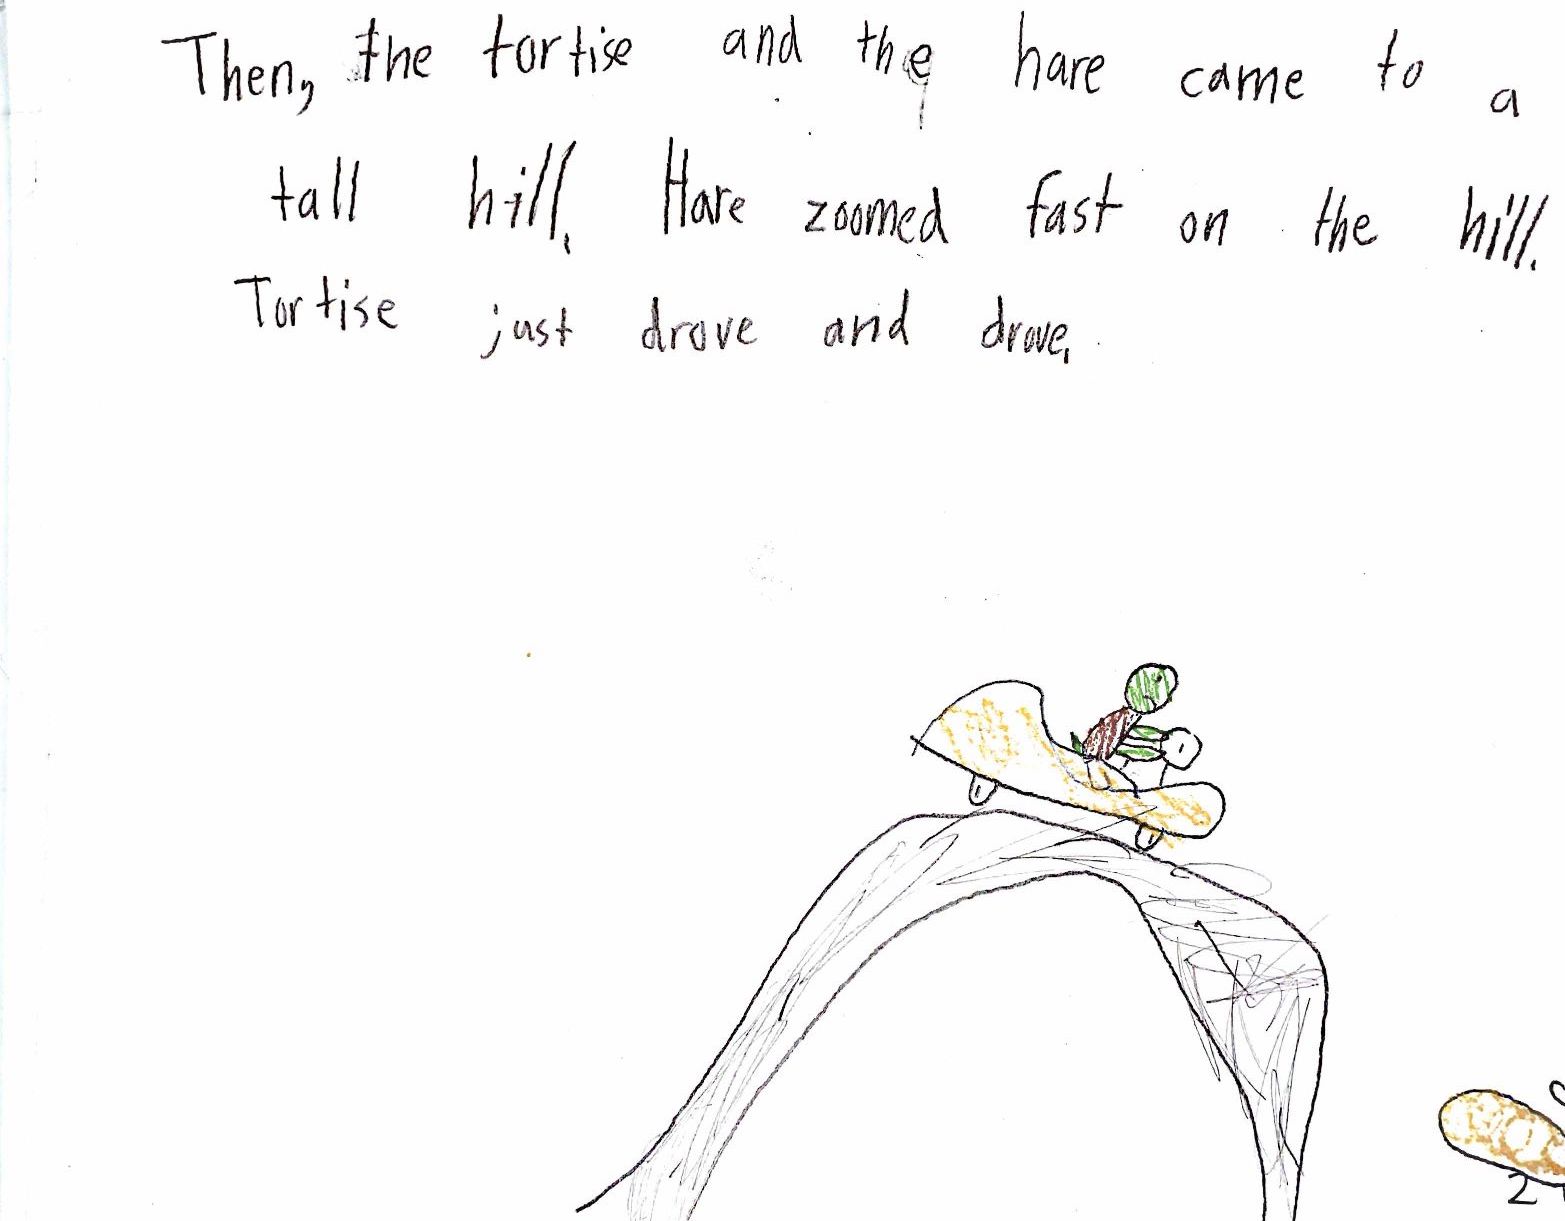 Then, the tortise and the hare came to a
tall hill. Hare zoomed fast on the hill.
Tortise just drove and drove.
2